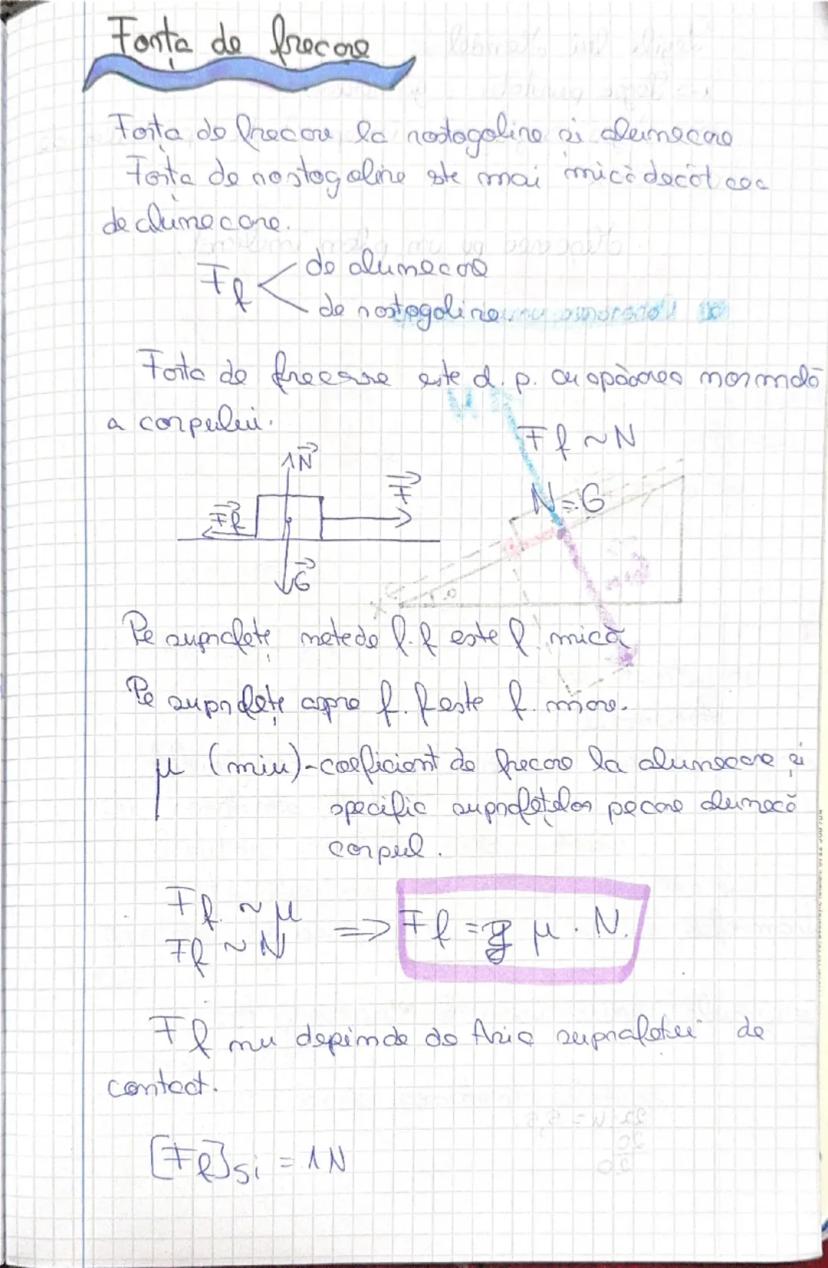 Forța de frecare
Forța de frecare la rostogolire și alunecare
Forța de rostogolire este mai mică decât cea
de alunecare.
Ff < de alunecare
de rostogolire
Forța de frecare este d. p. cu apăsarea normală
a corpului.
Ff ~ N
N = G
N
F
Ff
G
Pe suprafețe netede f. f este f. mică
Pe suprafețe aspre f. f este f. mare.
μ (miu) - coeficient de frecare la alunecare și
specific suprafețelor pe care alunecă
corpul.
Ff ~ μ
Ff ~ N
=> Ff = μ · N.
Ff nu depinde de Aria suprafetei de
contact.
[Ff]Si = 1N